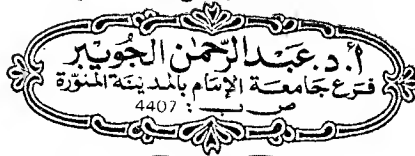 أ. د. عبد الرحمن الجويبر
فرع جامعة الإمام بالمدينة المنورة
ص ب : 4407